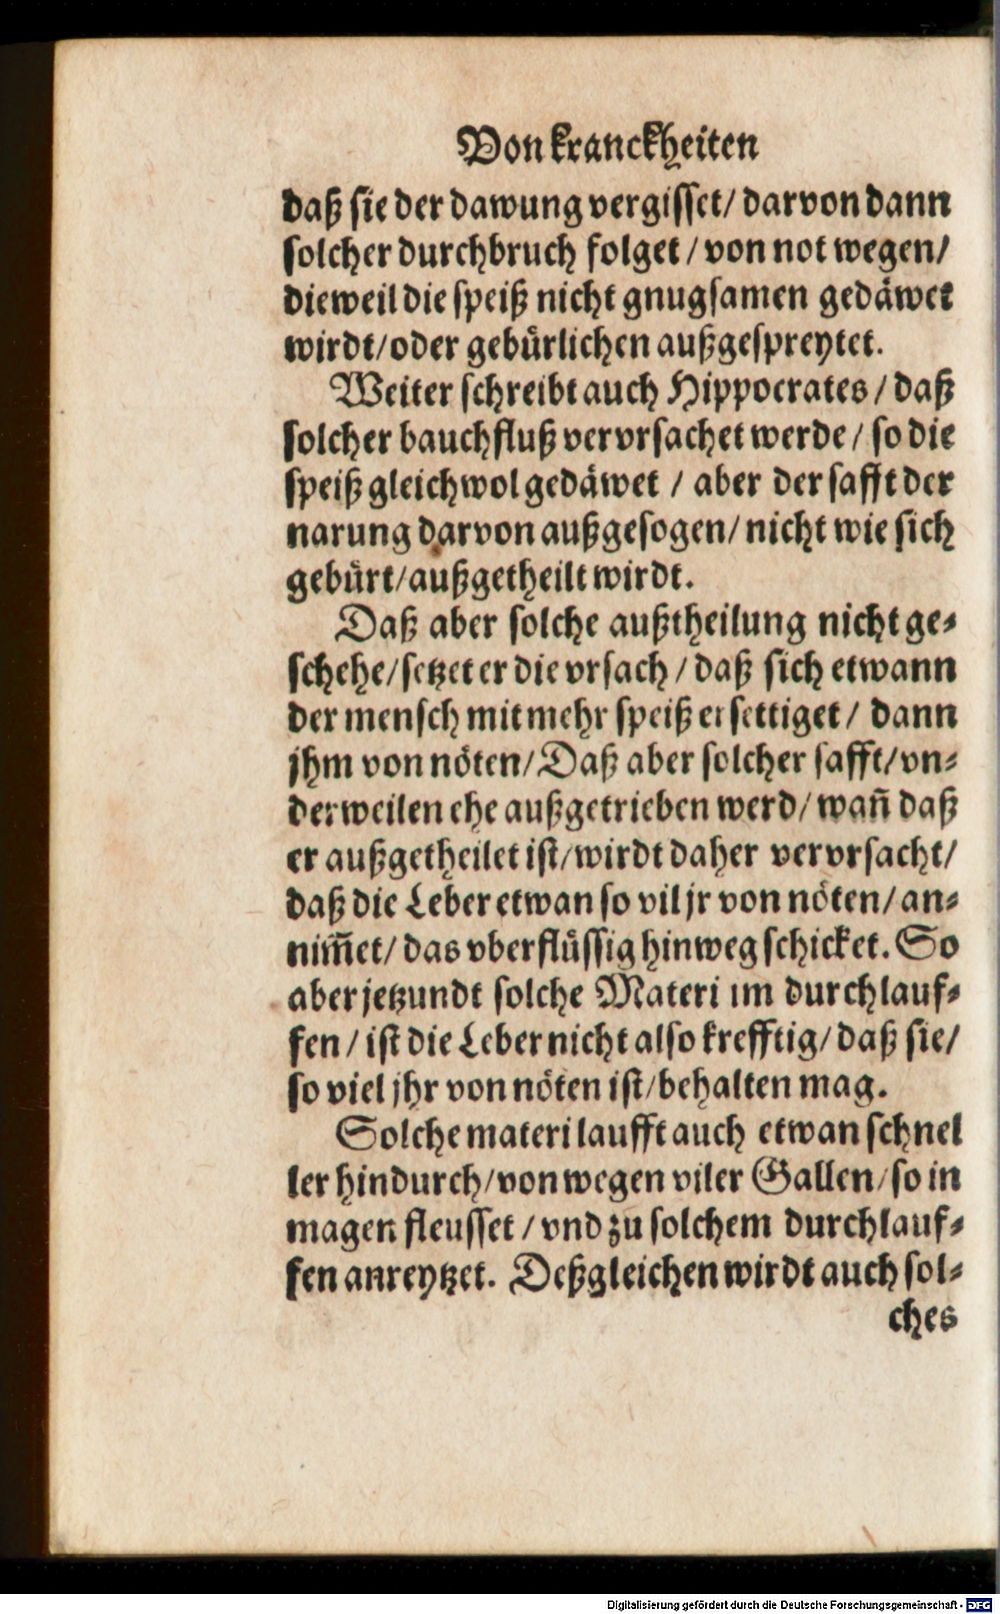 Von kranckheiten
daß sie der dawung vergisset/ darvon dann
solcher durchbruch folget / von not wegen/
dieweil die speiß nicht gnugsamen gedäwet
wirdt/oder gebürlichen außgespreytet.
Weiter schreibt auch Hippocrates / daß
solcher bauchfluß vervrsachet werde / so die
speiß gleichwol gedäwet / aber der safft der
narung darvon außgesogen/ nicht wie sich
gebürt/außgetheilt wirdt.
Daß aber solche außtheilung nicht ge⸗
schehe/setzet er die vrsach / daß sich etwann
der mensch mit mehr speiß ersettiget / dann
jhm von nöten/ Daß aber solcher safft/vn⸗
derweilen ehe außgetrieben werd/ wañ daß
er außgetheilet ist/wirdt daher vervrsacht/
daß die Leber etwan so vil jr von nöten/ an⸗
nim̃et/ das vberflüssig hinweg schicket. So
aber jetzundt solche Materi im durchlauf⸗
fen / ist die Leber nicht also krefftig/ daß sie/
so viel jhr von nöten ist/behalten mag.
Solche materi laufft auch etwan schnel
ler hindurch/von wegen viler Gallen/so in
magen fleusset / vnd zu solchem durchlauf⸗
fen anreytzet. Deßgleichen wirdt auch sol⸗
ches
Digitalisierung gefördert durch die Deutsche Forschungsgemeinschaft - DFG